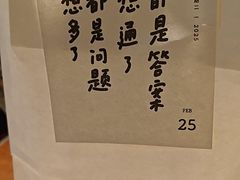 想多了
都是问题
想通了
都是答案
2025
FEB
25